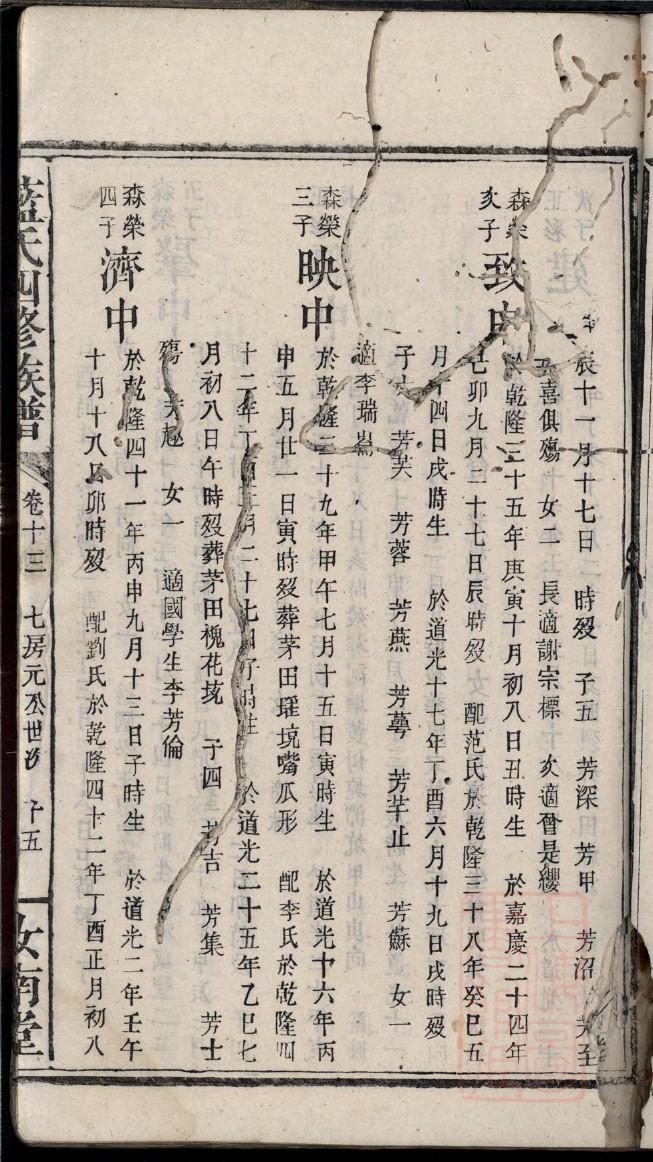 辰十一月十七日 時殁 子五 芳深 芳甲 芳沼 芳至
喜俱殤 女二 長適謝宗標 次適曾是纓
森榮
次子
致中
於乾隆三十五年庚寅十月初八日丑時生 於嘉慶二十四年
己卯九月二十七日辰時殁 配范氏於乾隆三十八年癸巳五
月十四日戌時生 於道光十七年丁酉六月十九日戌時殁
子 芳芙 芳蓉 芳燕 芳蕚 芳芊止 芳蘇 女一
適李瑞
森榮
三子
映中
於乾隆三十九年甲午七月十五日寅時生 於道光十六年丙
申五月廿一日寅時殁葬茅田瑾境嘴瓜形 配李氏於乾隆四
十二年丁酉 月二十七日 時生 於道光二十五年乙巳七
月初八日午時殁葬茅田槐花垓 子四 芳吉 芳集 芳士
殤 芳趂 女一 適國學生李芳倫
森榮
四子
濟中
於乾隆四十一年丙申九月十三日子時生 於道光二年壬午
十月十八日卯時殁 配劉氏於乾隆四十二年丁酉正月初八
藍氏四修族譜 卷十三 七房元公世 十五 汝南堂